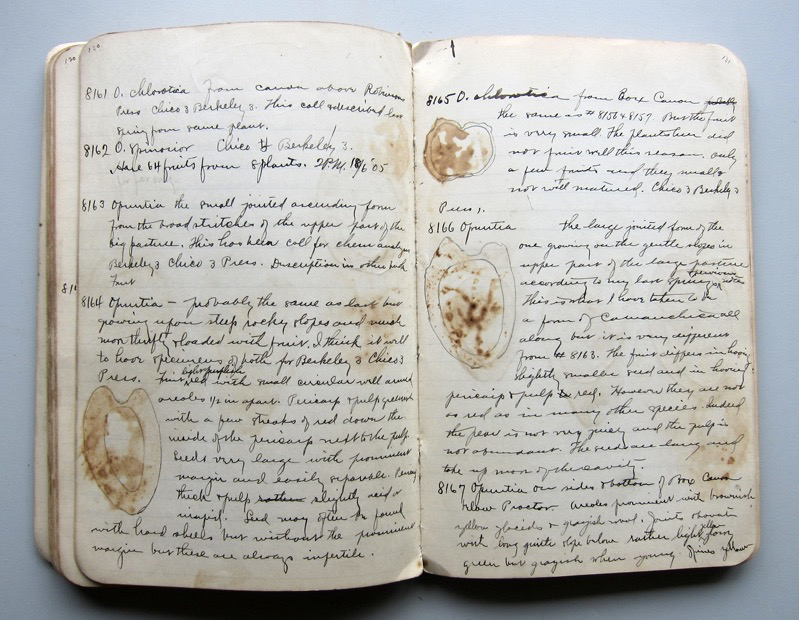 120
8161 O. chlorotica from canon above Robinsons
Press Chico 3 Berkeley 3. This coll & described last
spring from same plant.
8162 O. spinosior Chico 4 Berkeley 3.
Have 64 fruits from 8 plants. 2 P.M. 10/6 '05
8163 Opuntia the small jointed ascending form
from the broad stretches of the upper part of the
big pasture. This has been coll for chem analysis
Berkeley 3 Chico 3 Press. Description in other book
Fruit
8164 Opuntia — probably the same as last but
growing upon steep rocky slopes and much
more thrifty & loaded with fruit. I think it well
to have specimens of both for Berkeley 3 Chico 3
Press. Fruit light purplish red with small circular well armed
areoles 1/2 in apart. Pericarp & pulp greenish
with a few streaks of red down the
inside of the pericarp next to the pulp.
Seeds very large with prominent
margin and easily separable. Pericarp
thick & pulp rather slightly acid or
insipid. Seed may often be found
with hard shells but without the prominent
margin but these are always infertile.
121
8165 O. chlorotica from Box Canon probably
the same as # 8156 & 8157 But the fruit
is very small. The plants here did
not fruit well this season, only
a few fruits and they small &
not well matured. Chico 3 Berkeley 3
Press,
8166 Opuntia the large jointed form of the
one growing on the gentle slopes in
upper part of the large pasture
according to my last spring's previous notes
This is what I have taken to be
a form of Camanchica all
along but it is very different
from # 8163. The fruit differs in having
slightly smaller seed and in having
pericarp & pulp red. However they are not
as red as in many other species. Indeed
the pear is not very juicy and the pulp is
not abundant. The seeds are large and
take up most of the cavity.
8167 Opuntia on sides & bottom of Box Canon
below Proctor. Areoles prominent with brownish
yellow glochids & grayish wool. Joints obovate
with long gentle slope below rather light yellow
green but grayish when young. Spines yellow